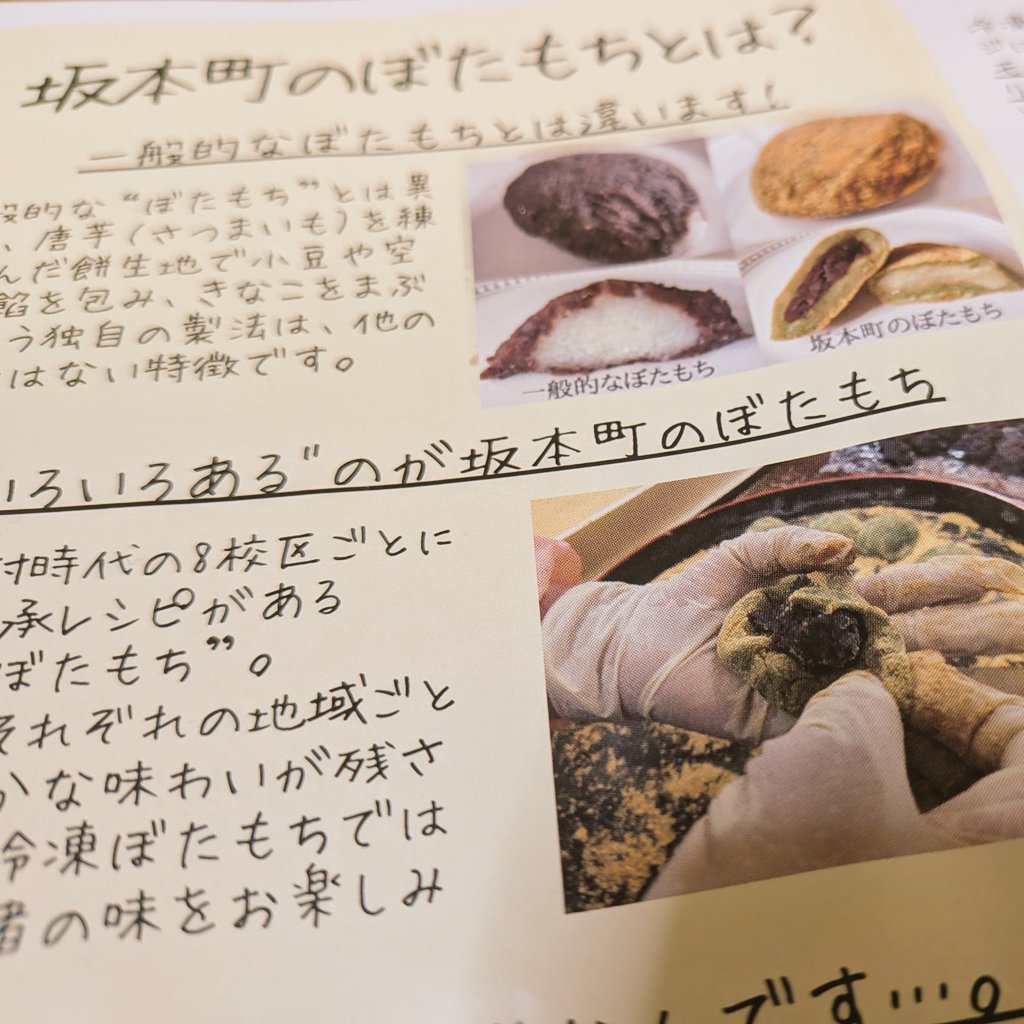 坂本町のぼたもちとは?
一般的なぼたもちとは違います!
般的な“ぼたもち”とは異
、唐芋(さつまいも)を練
んだ餅生地で小豆や空
餡を包み、きなこをまぶ
う独自の製法は、他の
はない特徴です。
一般的なぼたもち
坂本町のぼたもち
いろいろある”のが坂本町のぼたもち
村時代の8校区ごとに
承レシピがある
ぼたもち”。
それぞれの地域ごと
かな味わいが残さ
冷凍ぼたもちでは
者の味をお楽しみ
です…。